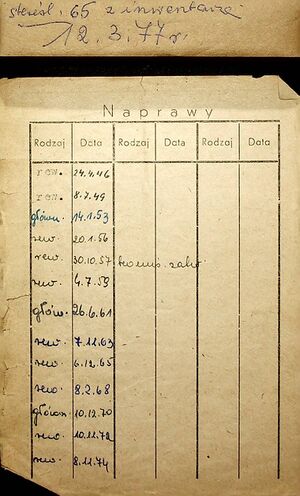 skreśl. 65 z inwentarza
12.3.77 r.
Naprawy
Rodzaj Data Rodzaj Data Rodzaj Data
rew. 24.4.46
rew. 8.7.49
główn. 14.1.53
rew. 20.1.56
rew. 30.10.57
rew. 4.7.59
główn. 26.6.61
rew. 7.11.63
rew. 6.12.65
rew. 8.2.68
główn. 10.12.70
rew. 10.11.72
rew. 8.11.74